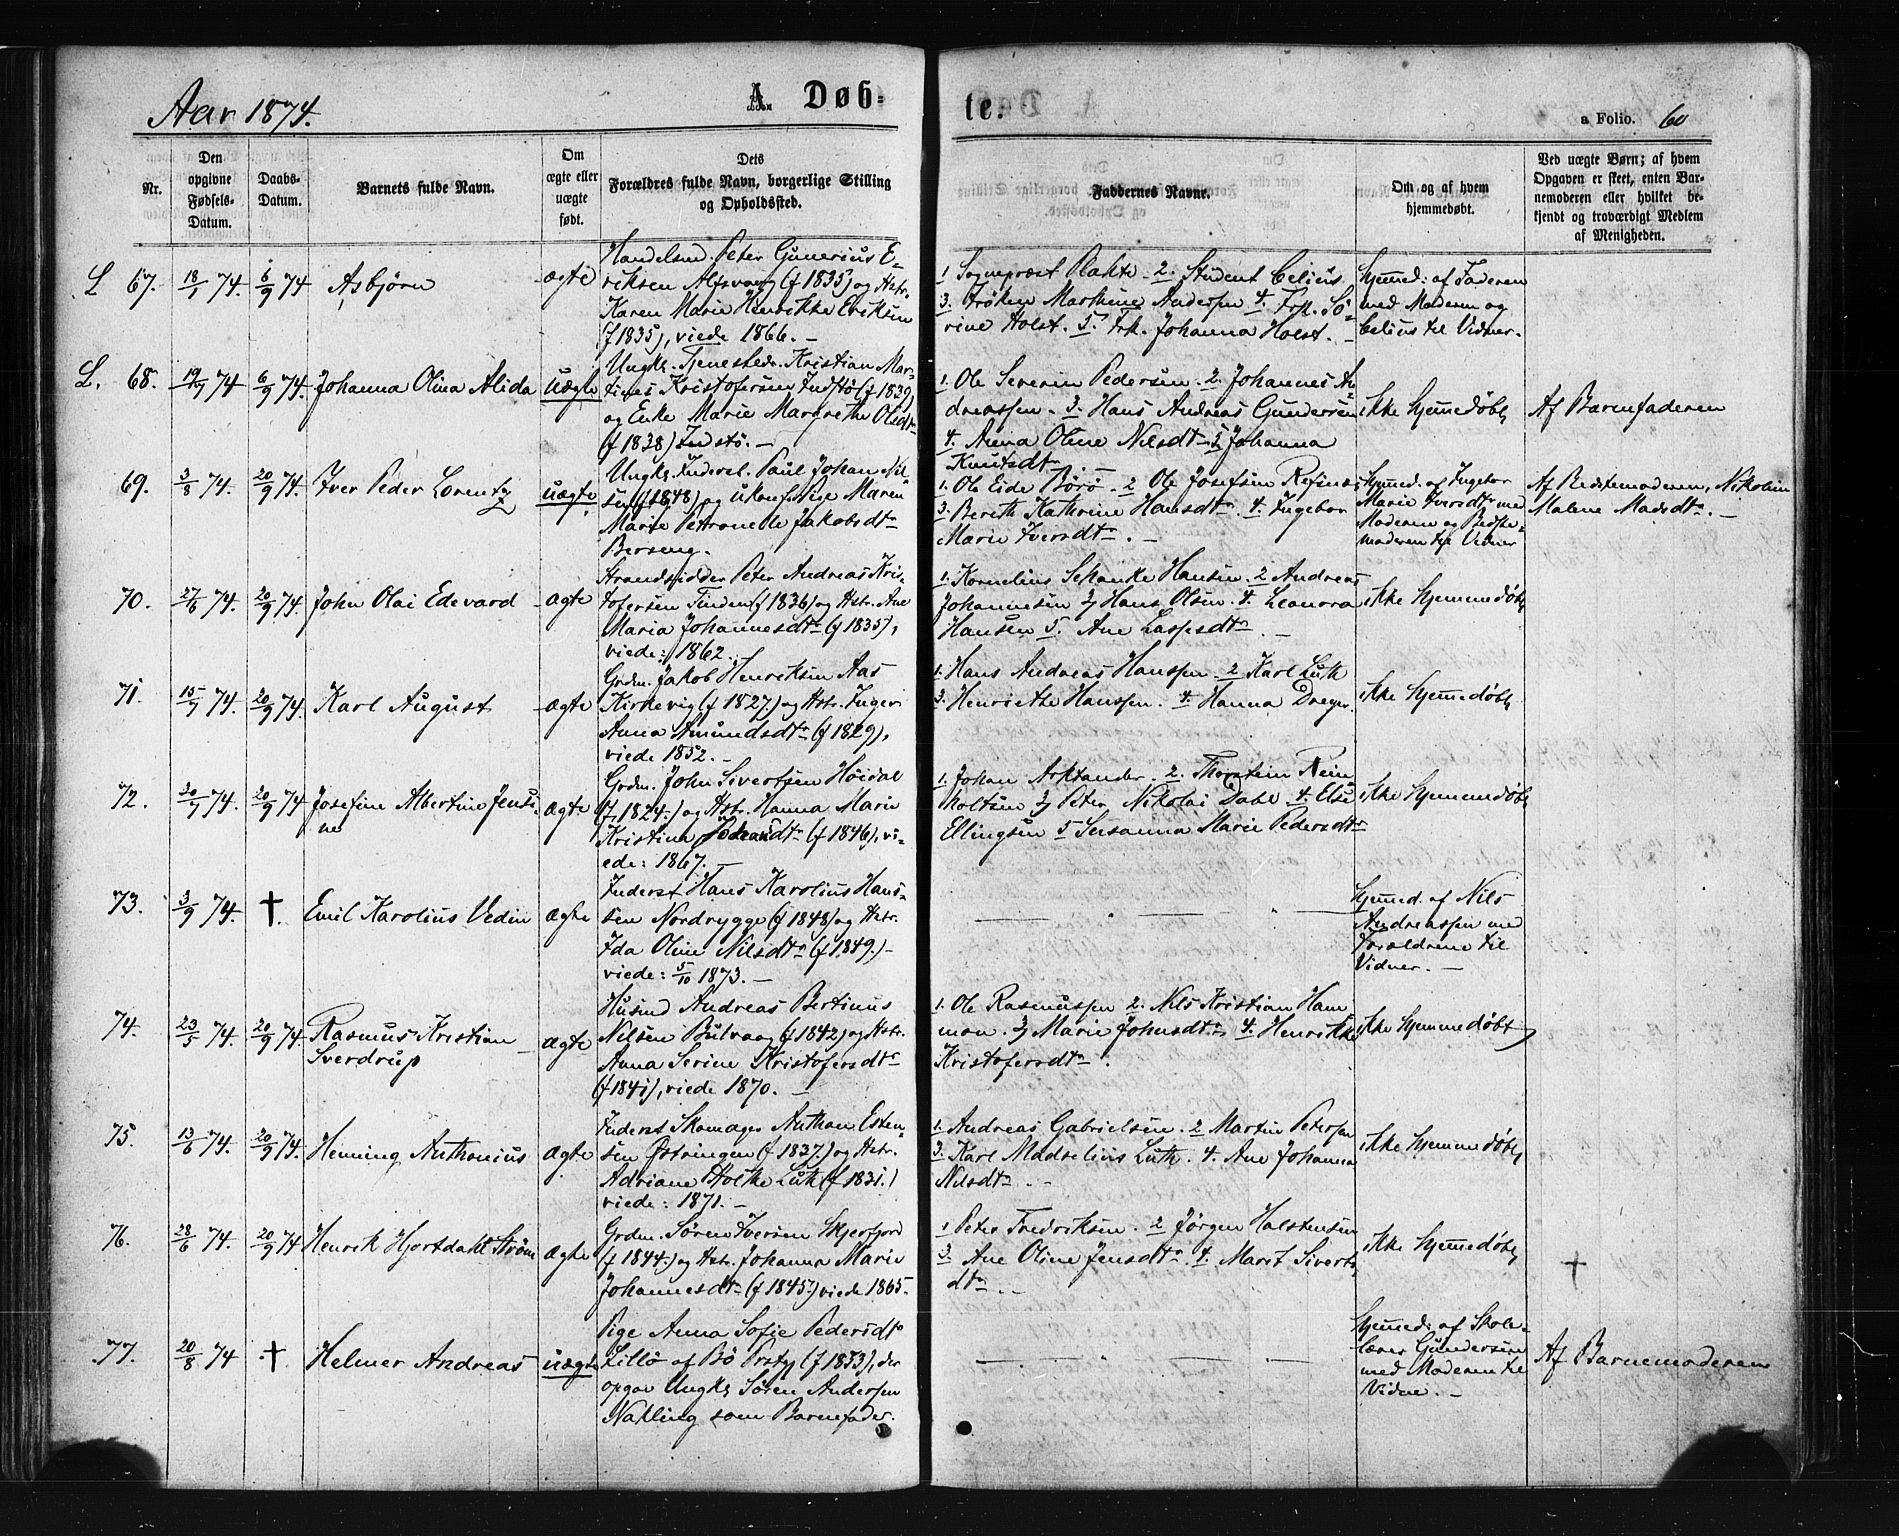 Aar 1874.
A. Døb-
te.
a Folio. 60
Nr.
Den opgivne Fødsels-Datum.
Daabs-Datum.
Barnets fulde Navn.
Om ægte eller uægte født.
Dets Forældres fulde Navn, borgerlige Stilling og Opholdssted.
Faddernes Navne.
Om og af hvem hjemmedøbt.
Ved uægte Børn; af hvem Opgaven er skeet, enten Barnemoderen eller hvilket bekjendt og troværdigt Medlem af Menigheden.
L 67. 18/1 74. 6/9 74 Asbjørn ægte
Handelsmd. Peter Gunerius E-
riksen Alfsvaag (f 1835) og Hstr.
Karen Marie Henrikke Eriksen
(f 1835), viede 1866. —
1 Sognepræst Plahte 2. Student Celius
3. Frøken Marthine Andersen 4. Frk. Sø-
rine Holst. 5. Frk. Johanna Holst. —
Hjemmed: af Faderen
med Moderen og
Celius til Vidner.
L. 68. 19/7 74 6/9 74. Johanna Olina Alida uægte
Ungk. Tjenestedr. Kristian Mar-
tines Kristofersen Indstø (f 1839)
og Enke Marie Margrethe Olsdtr
(f 1838) Indstø. —
1. Ole Severin Pedersen. 2. Johannes An-
dreassen. 3. Hans Andreas Gundersen
4. Anna Oline Nilsdtr 5 Johanna
Knutsdtr
ikke hjemmedøbt
Af Barnefaderen
69. 3/8 74. 20/9 74. Iver Peder Lorentz uægte
Ungk. Inderst. Paul Johan Nil-
sen (f 1848) og ukonf. Pige Maren
Marie Petronede Jakobsdtr
Berseng.
1. Ole Eide Børø. 2 Ole Josefsen Refsnes
3. Bereth Kathrine Hansdtr. 4. Ingebor
Marie Iversdtr. —
Hjemmed. af Ingebor
Marie Iversdtr med
Moderen og Bedste-
moderen til Vidner
Af Bedstemoderen, Nikolina
Malene Madsdtr. —
70. 27/6 74. 20/9 74. John Olai Edevard ægte
Strandsidder Peter Andreas Kris-
tofersen Tinden (f 1836) og Hstr. Ane
Maria Johannesdtr (f 1835),
viede: 1862.
1. Kornelius Schanke Hansen. 2 Andreas
Johannesen 3 Hans Olsen. 4. Leonora
Hansen 5. Ane Laspesdtr. —
ikke hjemmedøbt
71. 15/7 74. 20/9 74. Karl August ægte
Grdm. Jakob Henriksen Aas
Kirkevig (f 1827) og Hstr. Inger
Anna Amundsdtr (f 1829),
viede 1852. —
1. Hans Andreas Hanssen. 2 Karl Luth
3. Henriette Hanssen. 4. Hanna Dreyer.
ikke hjemmedøbt
72. 20/7 74. 20/9 74 Josefine Albertine Jensi-
ne ægte
Grdm. John Sivertsen Høidal
(f 1824.) og Hstr. Hanna Marie
Kristina (f 1846), vi-
ede: 1867.
1. Johan Arktander. 2. Thorstein Rein
holtsen 3 Peter Nikolai Dahl 4. Else
Ellingsen 5 Susanna Marie Pedersdtr
ikke hjemmedøbt
73. 3/9 74. †. Emil Karolius Vedin ægte
Inderst Hans Karolius Han-
sen Nordrygge (f 1848) og Hstr.
Ida Oline Nilsdtr (f 1849.) —
viede: 5/10 1873. —
Hjemmed. af Nils
Andreassen med
Forældrene til
Vidner. —
74. 23/5 74. 20/9 74 Rasmus Kristian
Sverdrup ægte
Husmd Andreas Bertinus
Nilsen Bulvaag (f 1842) og Hstr.
Anna Serine Kristofersdtr
(f 1841), viede 1870. —
1. Ole Rasmussen 2. Nils Kristian Ham
mon. 3 Marie Johnsdtr 4. Henrikke
Kristofersdtr.
ikke hjemmedøbt
75. 13/6 74. 20/9 74. Henning Anthonius ægte
Inderst Skomager Anthon Esten-
sen Østvingen (f 1837.) og Hstr.
Adriane Holthe Luth (f 1831.)
viede: 1871. —
1. Andreas Gabrielsen. 2 Martin Petersen
3. Karl Madselius Luth. 4. Ane Johanna
Nilsdtr. —
ikke hjemmedøbt
76. 28/6 74. 20/9 74 Henrik Hjortdahl Strøm ægte
Grdm. Søren Iversen Skjerfjord
(f 1844.) og Hstr. Johanna Marie
Johannesdtr (f 1845.) viede 1865.
1 Peter Fredriksen. 2 Jørgen Holstensen
3. Ane Oline Jensdtr. 4. Marit Siverts
dtr. —
ikke hjemmedøbt
†
77. 20/8 74 †. Helmer Andreas uægte
Pige Anna Sofie Pedersdtr
Lillø af Bø Prstg. (f 1853), der
opgav Ungk. Søren Andersen
Nakling som Barnefader.
Hjemmed: af Skole-
lærer Gundersen
med Moderen til
Vidne. —
Af Barnemoderen